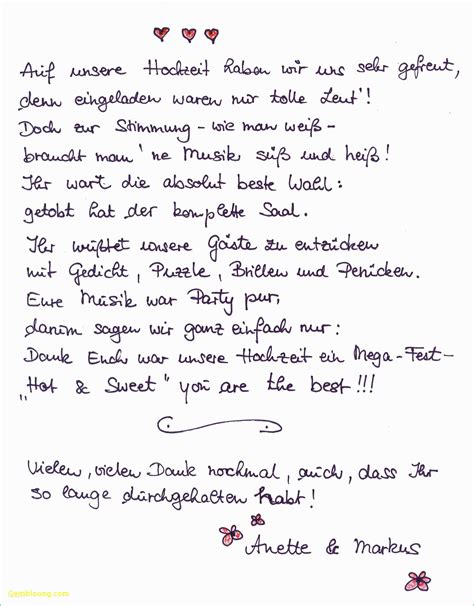 Auf unsere Hochzeit haben wir uns sehr gefreut,
denn eingeladen waren nur tolle Leut'!
Doch zur Stimmung - wie man weiß -
braucht man 'ne Musik süß und heiß!
Ihr wart die absolut beste Wahl:
getobt hat der komplette Saal.
Ihr wußtet unsere Gäste zu entzücken
mit Gedicht, Puzzle, Brillen und Perücken.
Eure Musik war Party pur,
darum sagen wir ganz einfach nur:
Dank Euch war unsere Hochzeit ein Mega-Fest-
"Hot & Sweet" you are the best!!!
Vielen, vielen Dank nochmal, auch, dass Ihr
so lange durchgehalten habt!
Anette & Markus
Gembloong.com